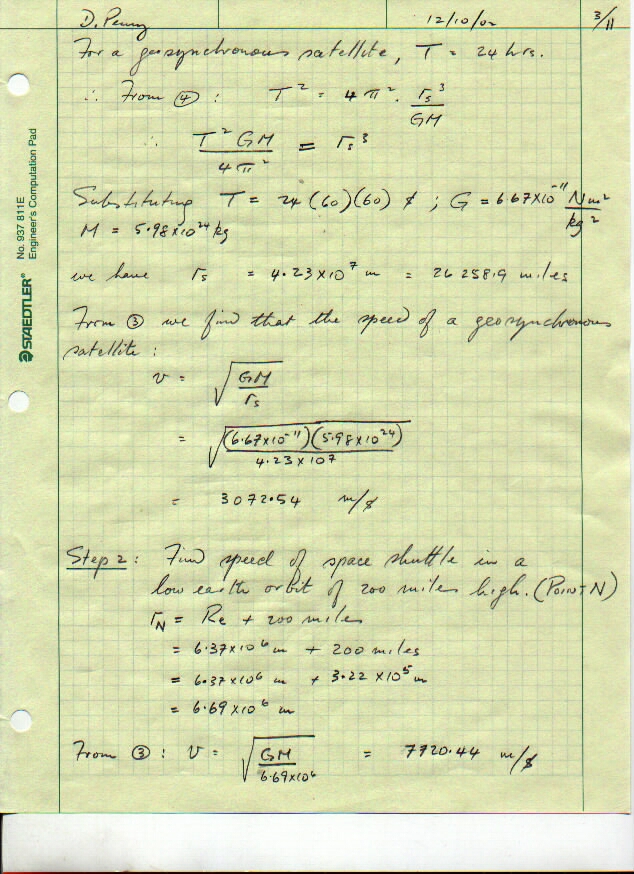 D. Penny 12/10/02 3/11
For a geosynchronous satellite, T = 24 hrs.
∴ From ④ : T² = 4π² · rs³/GM
∴ T² GM / 4π² = rs³
Substituting T = 24 (60)(60) s ; G = 6.67×10⁻¹¹ Nm²/kg²
M = 5.98×10²⁴ kg
we have rs = 4.23×10⁷ m = 26258.9 miles
From ③ we find that the speed of a geosynchronous
satellite :
v = √(GM/rs)
= √((6.67×10⁻¹¹)(5.98×10²⁴)/4.23×10⁷)
= 3072.54 m/s
Step 2 : Find speed of space shuttle in a
low earth orbit of 200 miles high. (POINT N)
rN = Re + 200 miles
= 6.37×10⁶ m + 200 miles
= 6.37×10⁶ m + 3.22×10⁵ m
= 6.69×10⁶ m
From ③ : v = √(GM/6.69×10⁶) = 7720.44 m/s
STAEDTLER® No. 937 811E
Engineer's Computation Pad